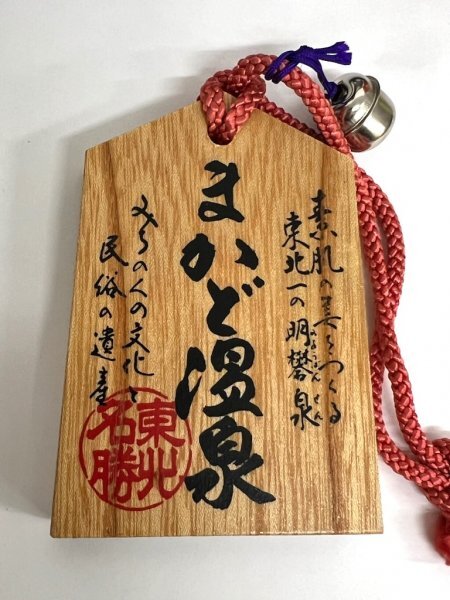 素肌の美をつくる
東北一の明礬泉
みょうばんせん
まかど温泉
みちのくの文化と
民俗の遺産
東北
名勝